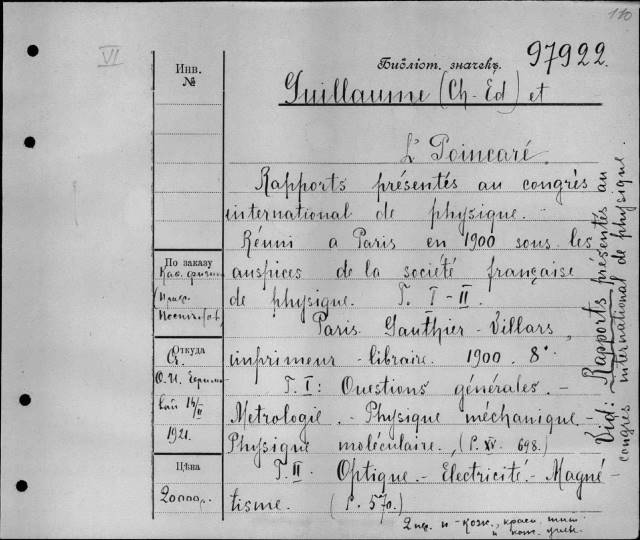 110
VI
Библіот. значекъ.
97922
Инв.
№
Guillaume (Ch-Ed) et
L' Poincaré.
Rapports présentés au congrès
international de physique.
Réuni a Paris en 1900 sous les
auspices de la société française
de physique. T. I-II.
Paris. Gauthier-Villars,
imprimeur-libraire. 1900. 8°.
T. I: Questions générales. -
Metrologie. - Physique méchanique -
Physique moléculaire. (P. XV. 698.)
T. II. Optique - Electricité - Magné-
tisme. (P. 570.)
По заказу
Каб. физи
Откуда
О. И.
1921.
Цѣна
20000р.
Vid: Rapports présentés au
congrès international de physique.
2 пер. и кож.